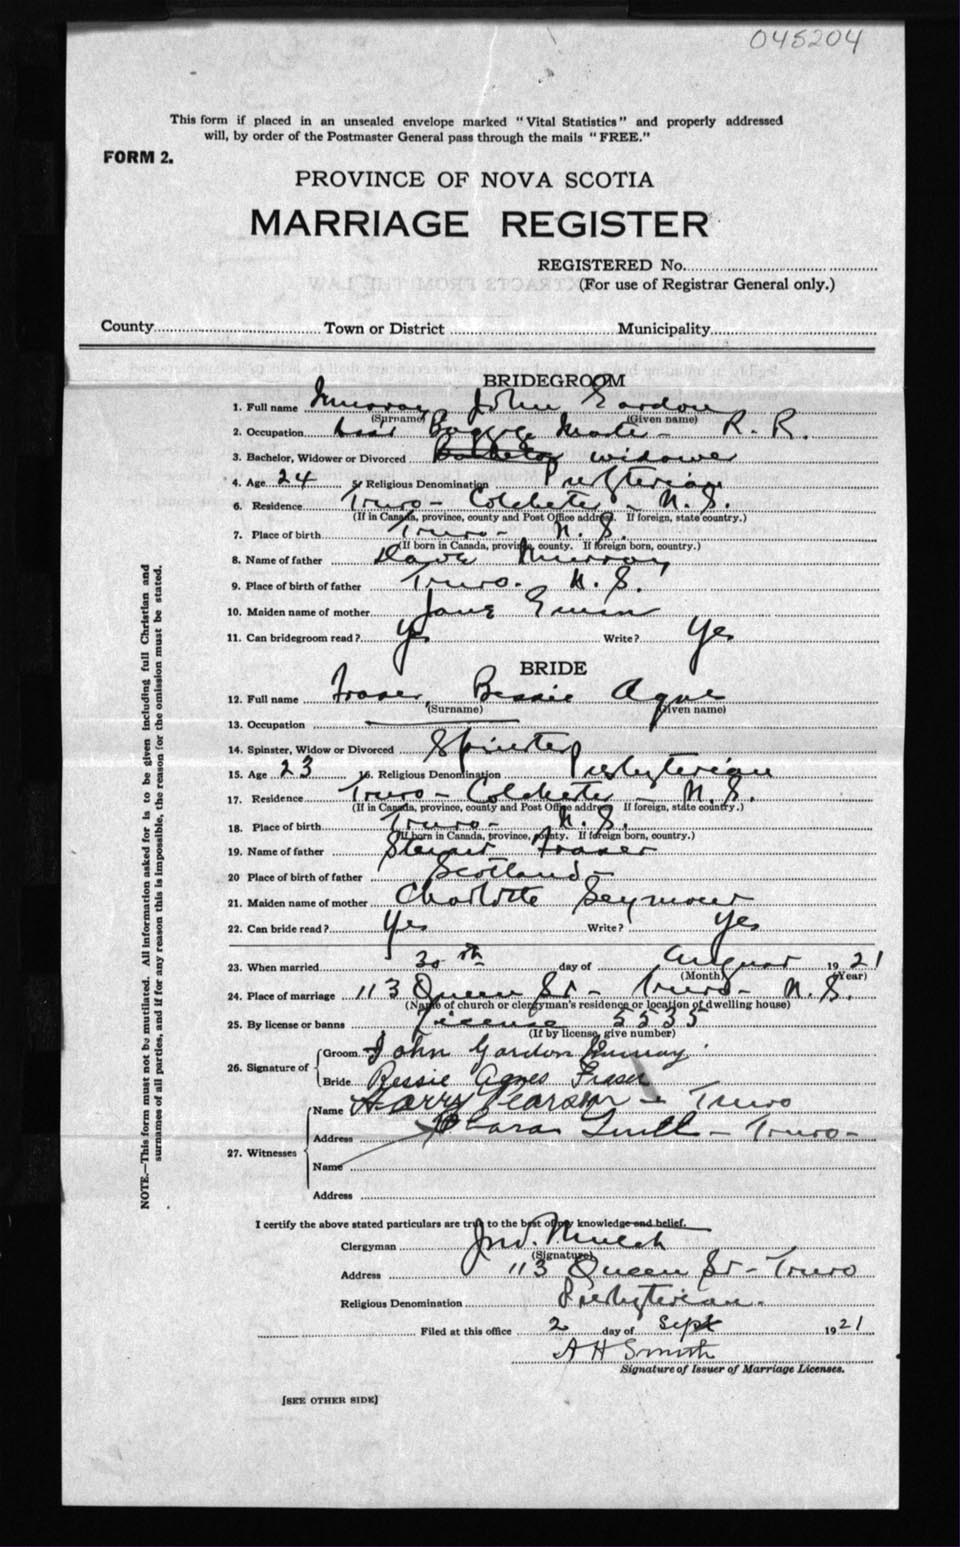 045204
This form if placed in an unsealed envelope marked "Vital Statistics" and properly addressed
will, by order of the Postmaster General pass through the mails "FREE."
FORM 2.
PROVINCE OF NOVA SCOTIA
MARRIAGE REGISTER
REGISTERED No.
(For use of Registrar General only.)
County Town or District Municipality
BRIDEGROOM
1. Full name Murray John Gordon
(Surname) (Given name)
2. Occupation R. R.
3. Bachelor, Widower or Divorced Bachelor widower
4. Age 24 5. Religious Denomination Presbyterian
6. Residence Truro - Colchester - N. S.
(If in Canada, province, county and Post Office address. If foreign, state country.)
7. Place of birth Truro - N. S.
(If born in Canada, province, county. If foreign born, country.)
8. Name of father Murray
9. Place of birth of father Truro. N. S.
10. Maiden name of mother Jane
11. Can bridegroom read? Yes Write? Yes
BRIDE
12. Full name Fraser, Bessie Agnes
(Surname) (Given name)
13. Occupation
14. Spinster, Widow or Divorced Spinster
15. Age 23 16. Religious Denomination Presbyterian
17. Residence Truro - Colchester - N. S.
(If in Canada, province, county and Post Office address If foreign, state country.)
18. Place of birth Truro - N. S.
(If born in Canada, province, county. If foreign born, country.)
19. Name of father Stewart Fraser
20 Place of birth of father Scotland -
21. Maiden name of mother Charlotte Seymour
22. Can bride read? Yes Write? Yes
23. When married 30th day of August 1921
(Month) (Year)
24. Place of marriage 113 Queen St - Truro - N. S.
(Name of church or clergyman's residence or location of dwelling house)
25. By license or banns License 5535
(If by license, give number)
26. Signature of
Groom John Gordon Murray
Bride Bessie Agnes Fraser
27. Witnesses
Name Harry Pearson - Truro
Address Clara - Truro -
Name
Address
I certify the above stated particulars are true to the best of my knowledge and belief.
Clergyman Jno.
(Signature)
Address 113 Queen St - Truro
Religious Denomination Presbyterian.
Filed at this office 2 day of Sept 1921
A H Smith
Signature of Issuer of Marriage Licenses.
[SEE OTHER SIDE]
NOTE.—This form must not be mutilated. All information asked for is to be given including full Christian and
surnames of all parties, and if for any reason this is impossible, the reason for the omission must be stated.